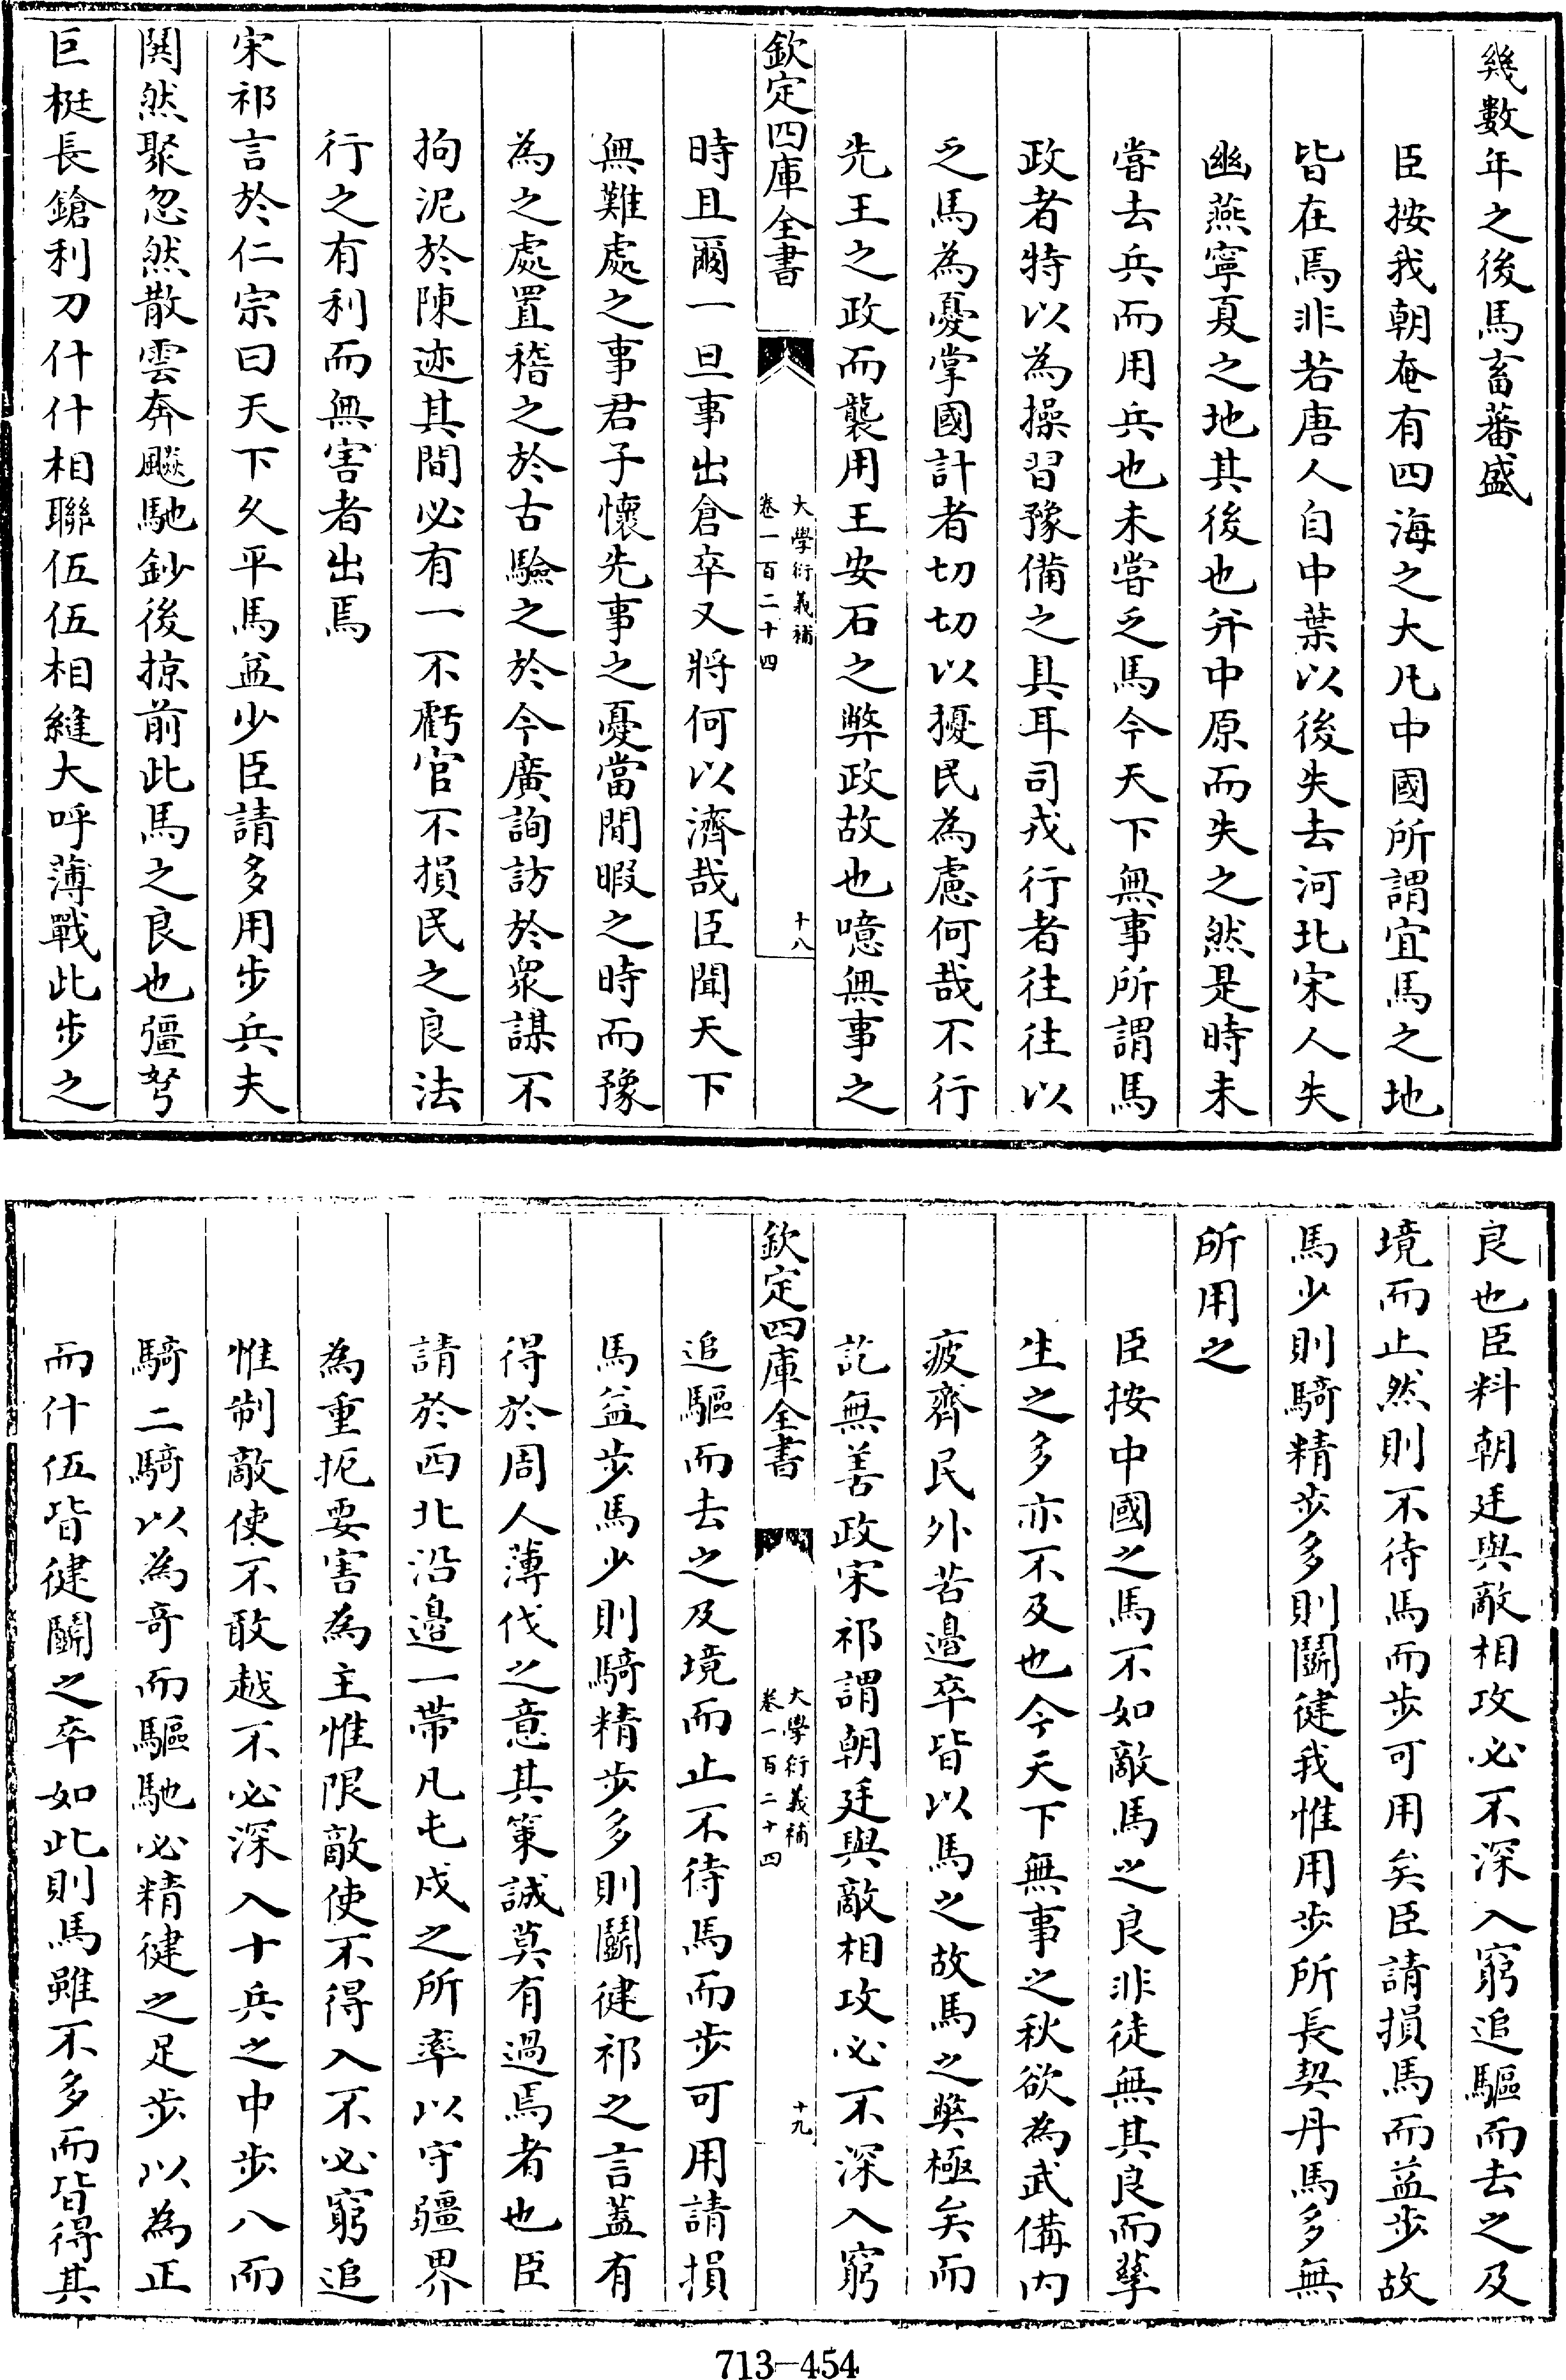 幾數年之後馬畜蕃盛
臣按我朝奄有四海之大凡中國所謂宜馬之地
皆在焉非若唐人自中葉以後失去河北宋人失
幽燕寧夏之地其後也并中原而失之然是時未
嘗去兵而用兵也未嘗乏馬今天下無事所謂馬
政者特以為操習豫備之具耳司戎行者往往以
乏馬為憂掌國計者切切以擾民為慮何哉不行
先王之政而襲用王安石之弊政故也噫無事之
欽定四庫全書
大學衍義補
卷一百二十四
十八
時且爾一旦事出倉卒又將何以濟哉臣聞天下
無難處之事君子懷先事之憂當閒暇之時而豫
為之處置稽之於古驗之於今廣詢訪於衆謀不
拘泥於陳迹其間必有一不虧官不損民之良法
行之有利而無害者出焉
宋祁言於仁宗曰天下乆平馬益少臣請多用步兵夫
鬨然聚忽然散雲奔飈馳鈔後掠前此馬之良也彊弩
巨梃長鎗利刀什什相聯伍伍相縫大呼薄戰此步之
良也臣料朝廷與敵相攻必不深入窮追驅而去之及
境而止然則不待馬而步可用矣臣請損馬而益步故
馬少則騎精步多則鬭健我惟用步所長契丹馬多無
所用之
臣按中國之馬不如敵馬之良非徒無其良而孳
生之多亦不及也今天下無事之秋欲為武備内
疲齊民外苦邉卒皆以馬之故馬之弊極矣而
訖無善政宋祁謂朝廷與敵相攻必不深入窮
欽定四庫全書
大學衍義補
卷一百二十四
十九
追驅而去之及境而止不待馬而步可用請損
馬益步馬少則騎精步多則鬭健祁之言蓋有
得於周人薄伐之意其策誠莫有過焉者也臣
請於西北沿邉一帶凡屯戍之所率以守疆界
為重扼要害為主惟限敵使不得入不必窮追
惟制敵使不敢越不必深入十兵之中步八而
騎二騎以為竒而驅馳必精健之足步以為正
而什伍皆健鬭之卒如此則馬雖不多而皆得其
713-454